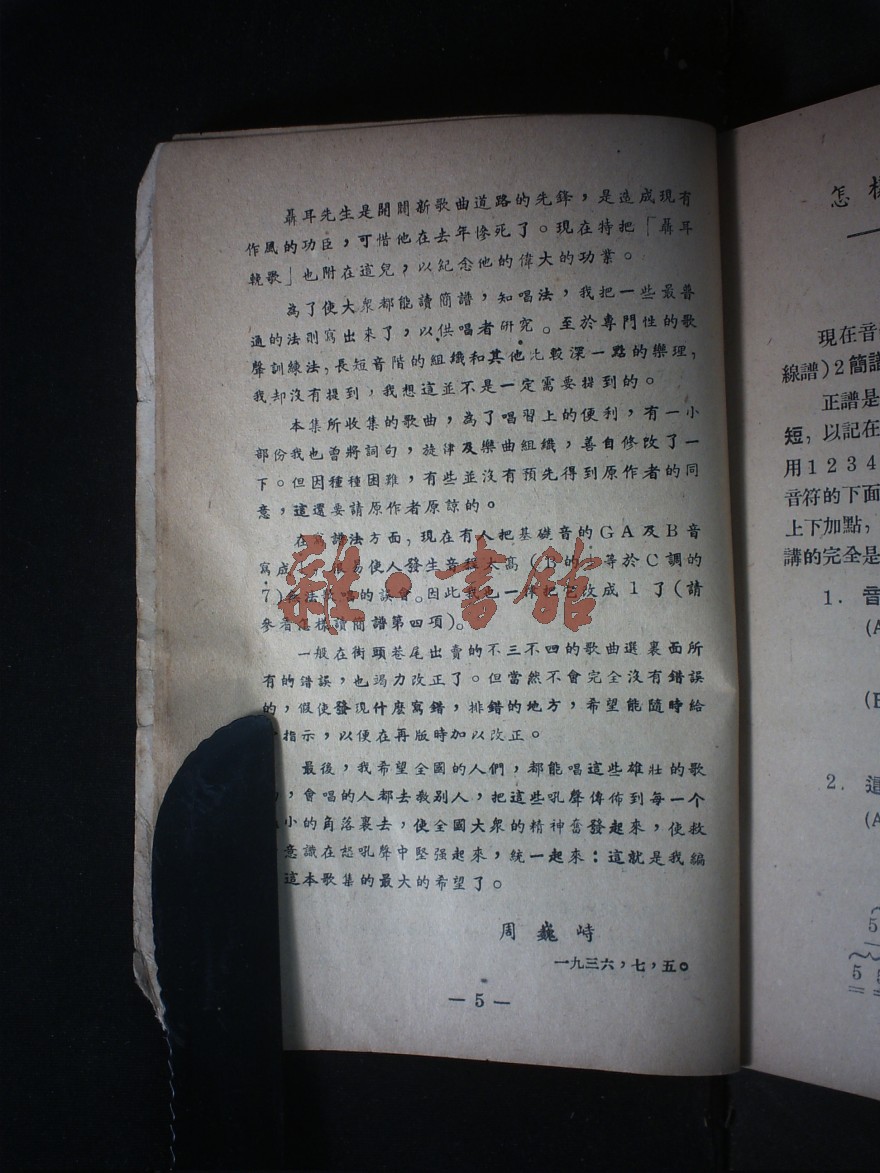 聶耳先生是開闢新歌曲道路的先鋒，是造成現有
作風的功臣，可惜他在去年慘死了。現在特把「聶耳
輓歌」也附在這兒，以紀念他的偉大的功業。
為了使大衆都能讀簡譜，知唱法，我把一些最普
通的法則寫出來了，以供唱者研究。至於專門性的歌
聲訓練法，長短音階的組織和其他比較深一點的樂理，
我却沒有提到，我想這並不是一定需要提到的。
本集所收集的歌曲，為了唱習上的便利，有一小
部份我也曾將詞句，旋津及樂曲組織，善自修改了一
下。但因種種困難，有些並沒有預先得到原作者的同
意，這還要請原作者原諒的。
在寫譜法方面，現在有人把基礎音的GA及B音
寫成 易使人發生音程太高（B的 等於C調的
7）無法歌唱的誤會。因此我也一律把它改成1了（請
參看怎樣讀簡譜第四項）。
一般在街頭巷尾出賣的不三不四的歌曲選裏面所
有的錯誤，也竭力改正了。但當然不會完全沒有錯誤
的，假使發現什麼寫錯，排錯的地方，希望能隨時給
指示，以便在再版時加以改正。
最後，我希望全國的人們，都能唱這些雄壯的歌
，會唱的人都去教别人，把這些吼聲傳佈到每一个
小的角落裏去，使全國大衆的精神奮發起來，使救
意識在怒吼聲中堅强起來，統一起來：這就是我編
這本歌集的最大的希望了。
周巍峙
一九三六，七，五。
— 5 —
雜·書館
怎樣
現在音
線譜）2簡譜
正譜是
短，以記在
用1 2 3 4
音符的下面
上下加點，
講的完全是
1. 音
(A
(B
2. 這
(A
5
5 5